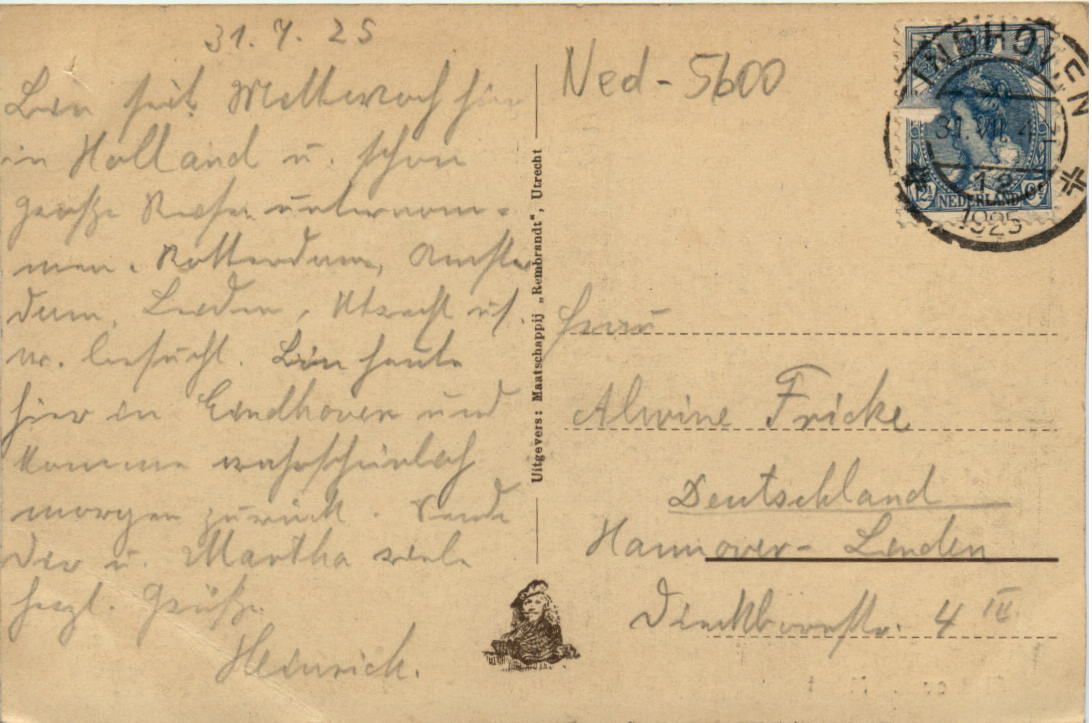 31. 7. 25
Bin seit Mittwoch hier
in Holland u. schon
große Reisen unternom-
men. Rotterdam, Amster
dam, Leiden, Utrecht usf.
w. besucht. Bin heute
hier in Eindhoven und
komme wahrscheinlich
morgen zurück. Sende
Dir u. Martha viele
herzl. Grüße
Heinrich.
Uitgevers: Maatschappij „Rembrandt", Utrecht
Ned - 5600
EINDHOVEN
31.VII. 4-
12
1925
NEDERLAND
12½ Ct
Frau
Alwine Fricke
Deutschland
Hannover- Linden
4 III